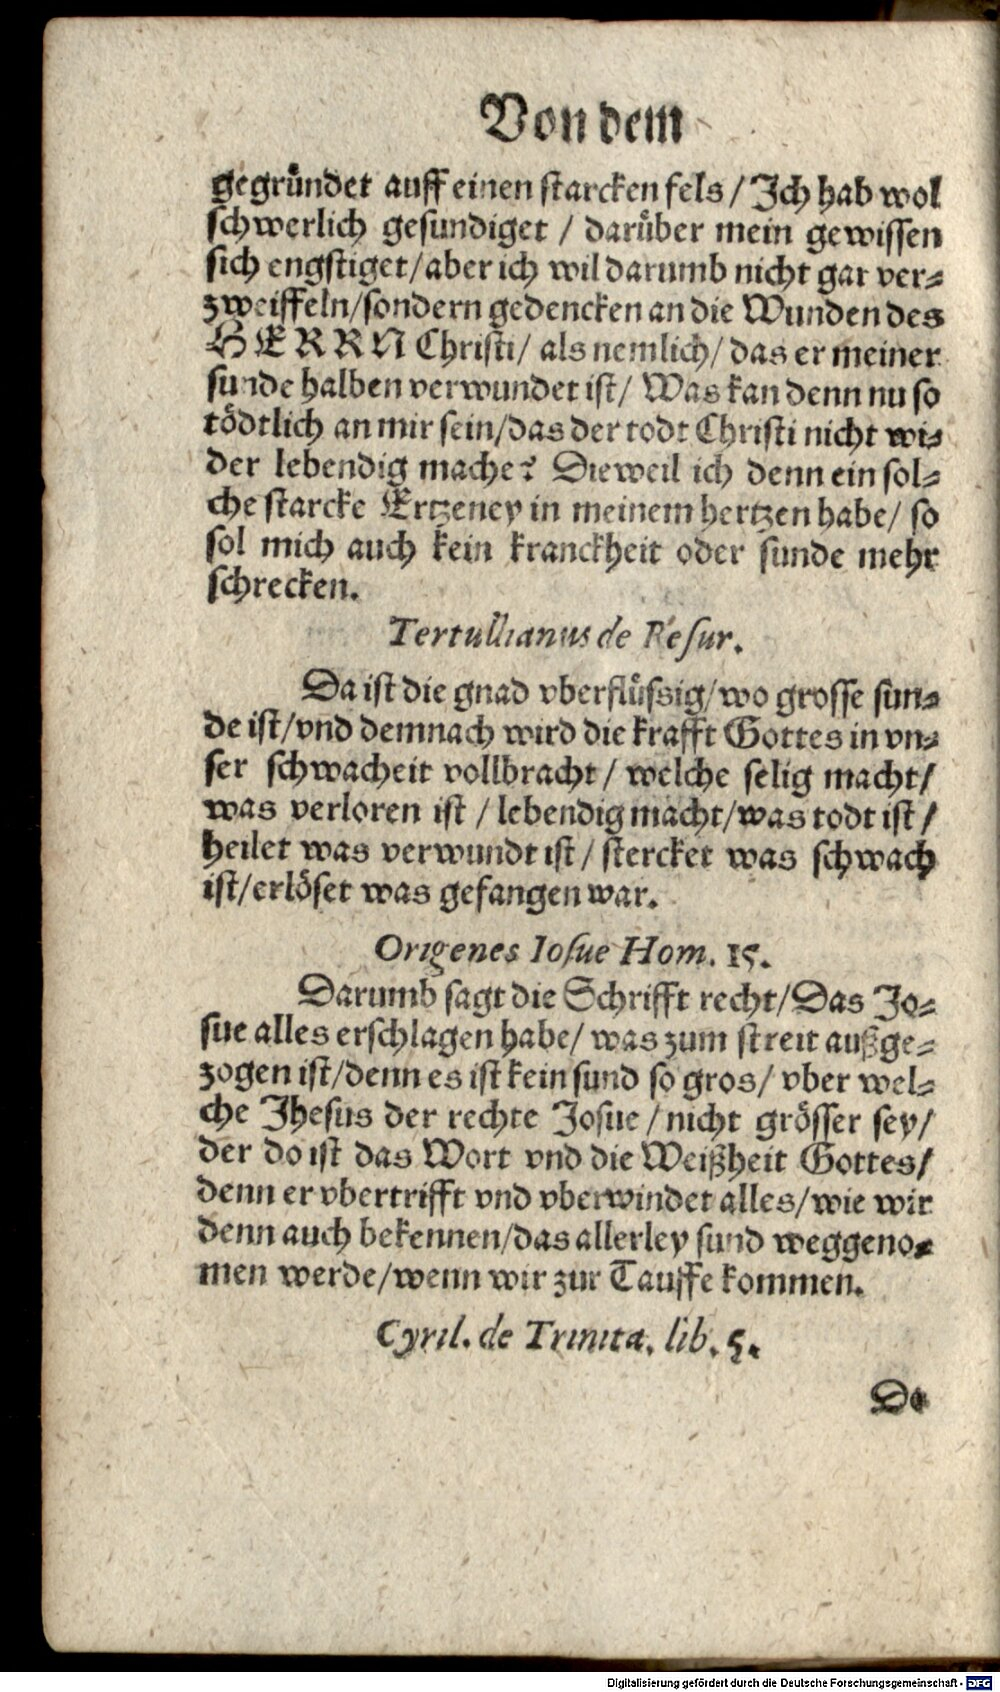 Von dem
gegründet auff einen starcken fels / Ich hab wol
schwerlich gesundiget / darüber mein gewissen
sich engstiget/aber ich wil darumb nicht gar ver⸗
zweiffeln/sondern gedencken an die Wunden des
HERRN Christi/ als nemlich/ das er meiner
sunde halben verwundet ist/ Was kan denn nu so
tödtlich an mir sein/das der todt Christi nicht wi⸗
der lebendig mache? Dieweil ich denn ein sol⸗
che starcke Ertzeney in meinem hertzen habe/ so
sol mich auch kein kranckheit oder sunde mehr
schrecken.
Tertullianus de Resur.
Da ist die gnad vberflüssig/wo grosse sun⸗
de ist/vnd demnach wird die krafft Gottes in vn⸗
ser schwacheit vollbracht / welche selig macht/
was verloren ist / lebendig macht/was todt ist /
heilet was verwundt ist / stercket was schwach
ist/erlöset was gefangen war.
Origenes Iosue Hom. 15.
Darumb sagt die Schrifft recht/Das Jo⸗
sue alles erschlagen habe/ was zum streit außge⸗
zogen ist/denn es ist kein sund so gros/ vber wel⸗
che Jhesus der rechte Josue / nicht grösser sey/
der do ist das Wort vnd die Weißheit Gottes/
denn er vbertrifft vnd vberwindet alles/wie wir
denn auch bekennen/das allerley sund weggeno⸗
men werde/wenn wir zur Tauffe kommen.
Cyril. de Trinita. lib. 5.
De
Digitalisierung gefördert durch die Deutsche Forschungsgemeinschaft - DFG